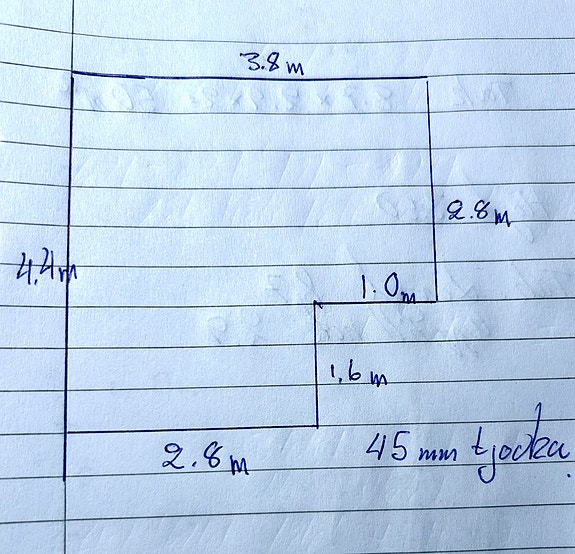 3.8 m
2.8 m
4.4 m
1.0 m
1.6 m
2.8 m
45 mm tjocka